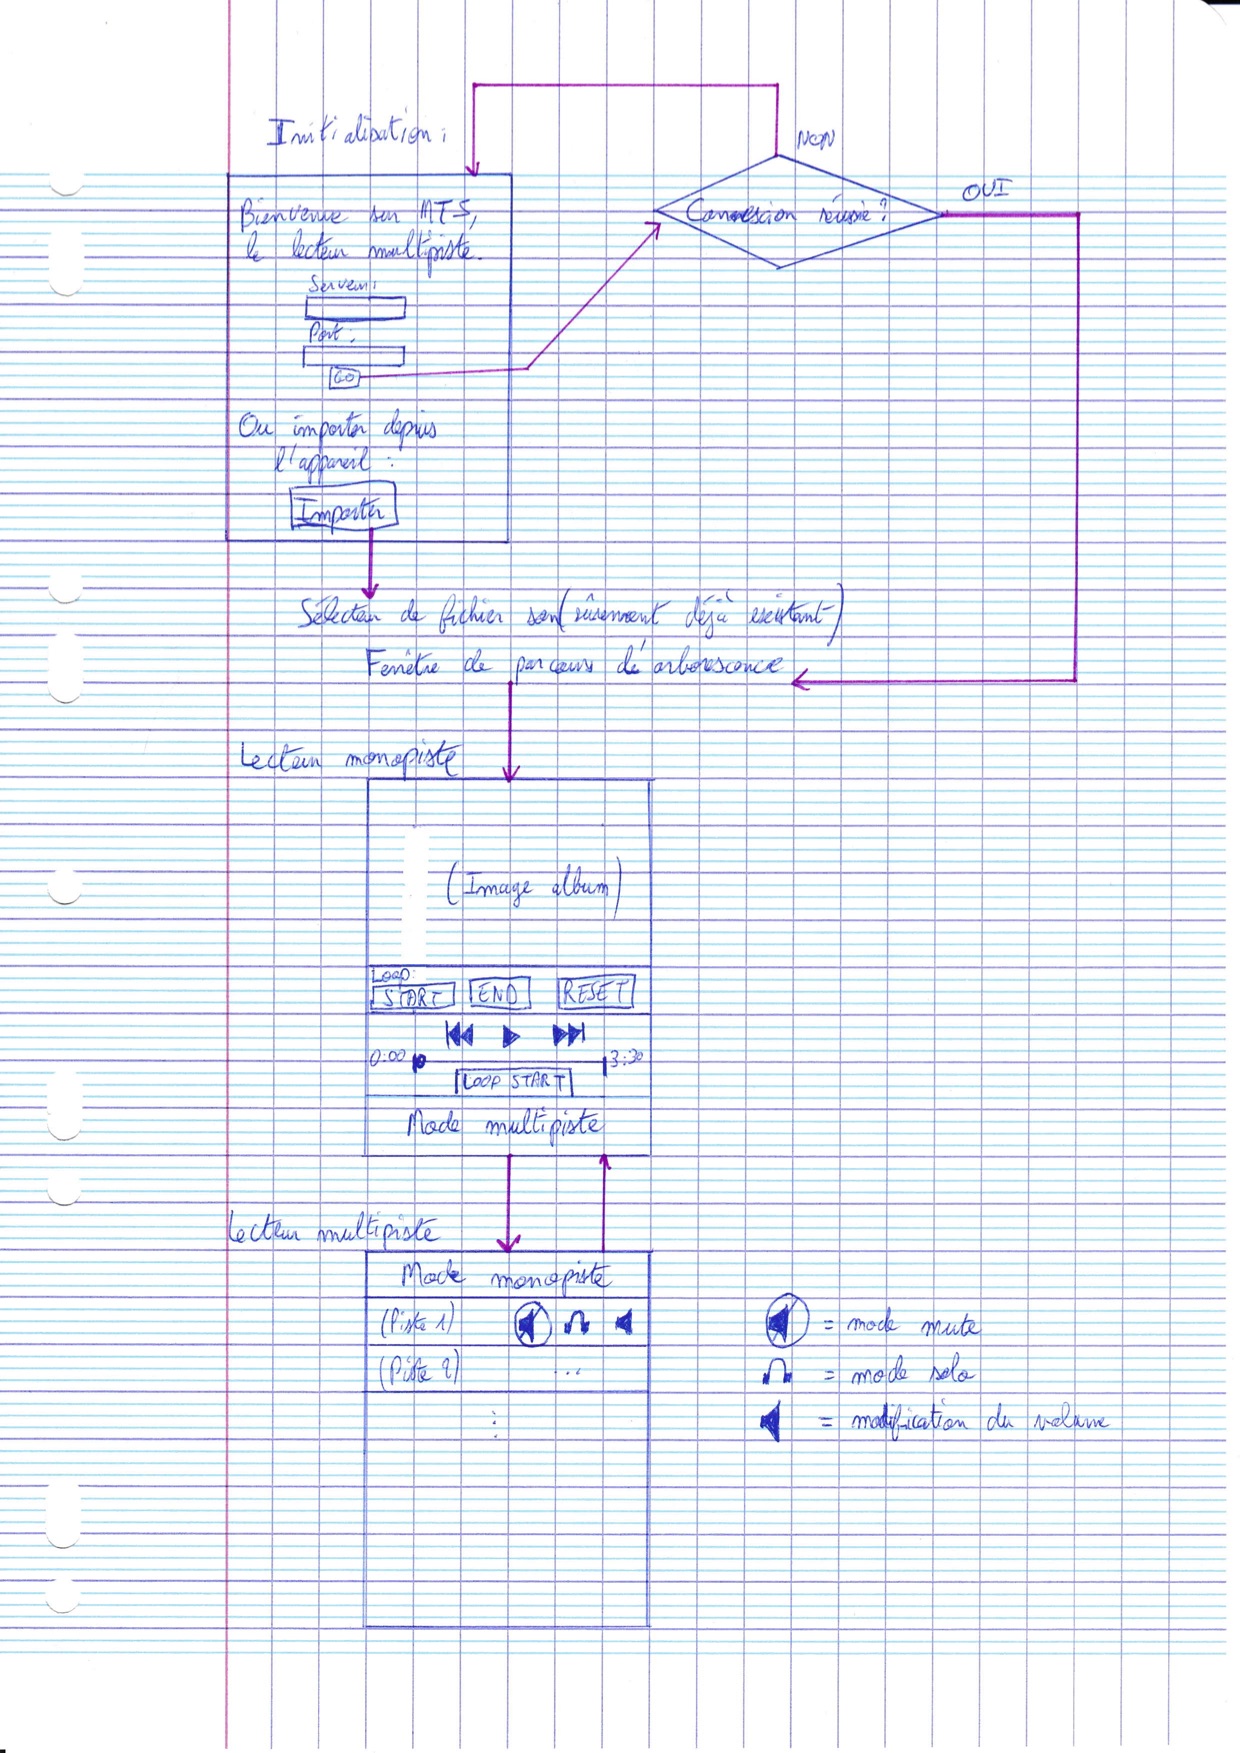 Initialisation :
NON
Bienvenue sur MTS,
le lecteur multipiste.
Connexion réussie ?
OUI
Serveur :
Port :
GO
Ou importer depuis
l'appareil :
Importer
Sélecteur de fichier son (sûrement déjà existant)
Fenêtre de parcours d'arborescence
Lecteur monopiste
(Image album)
Loop:
START END RESET
0:00 3:30
LOOP START
Mode multipiste
Lecteur multipiste
Mode monopiste
(Piste 1)
= mode mute
(Piste 2) ...
= mode solo
= modification du volume